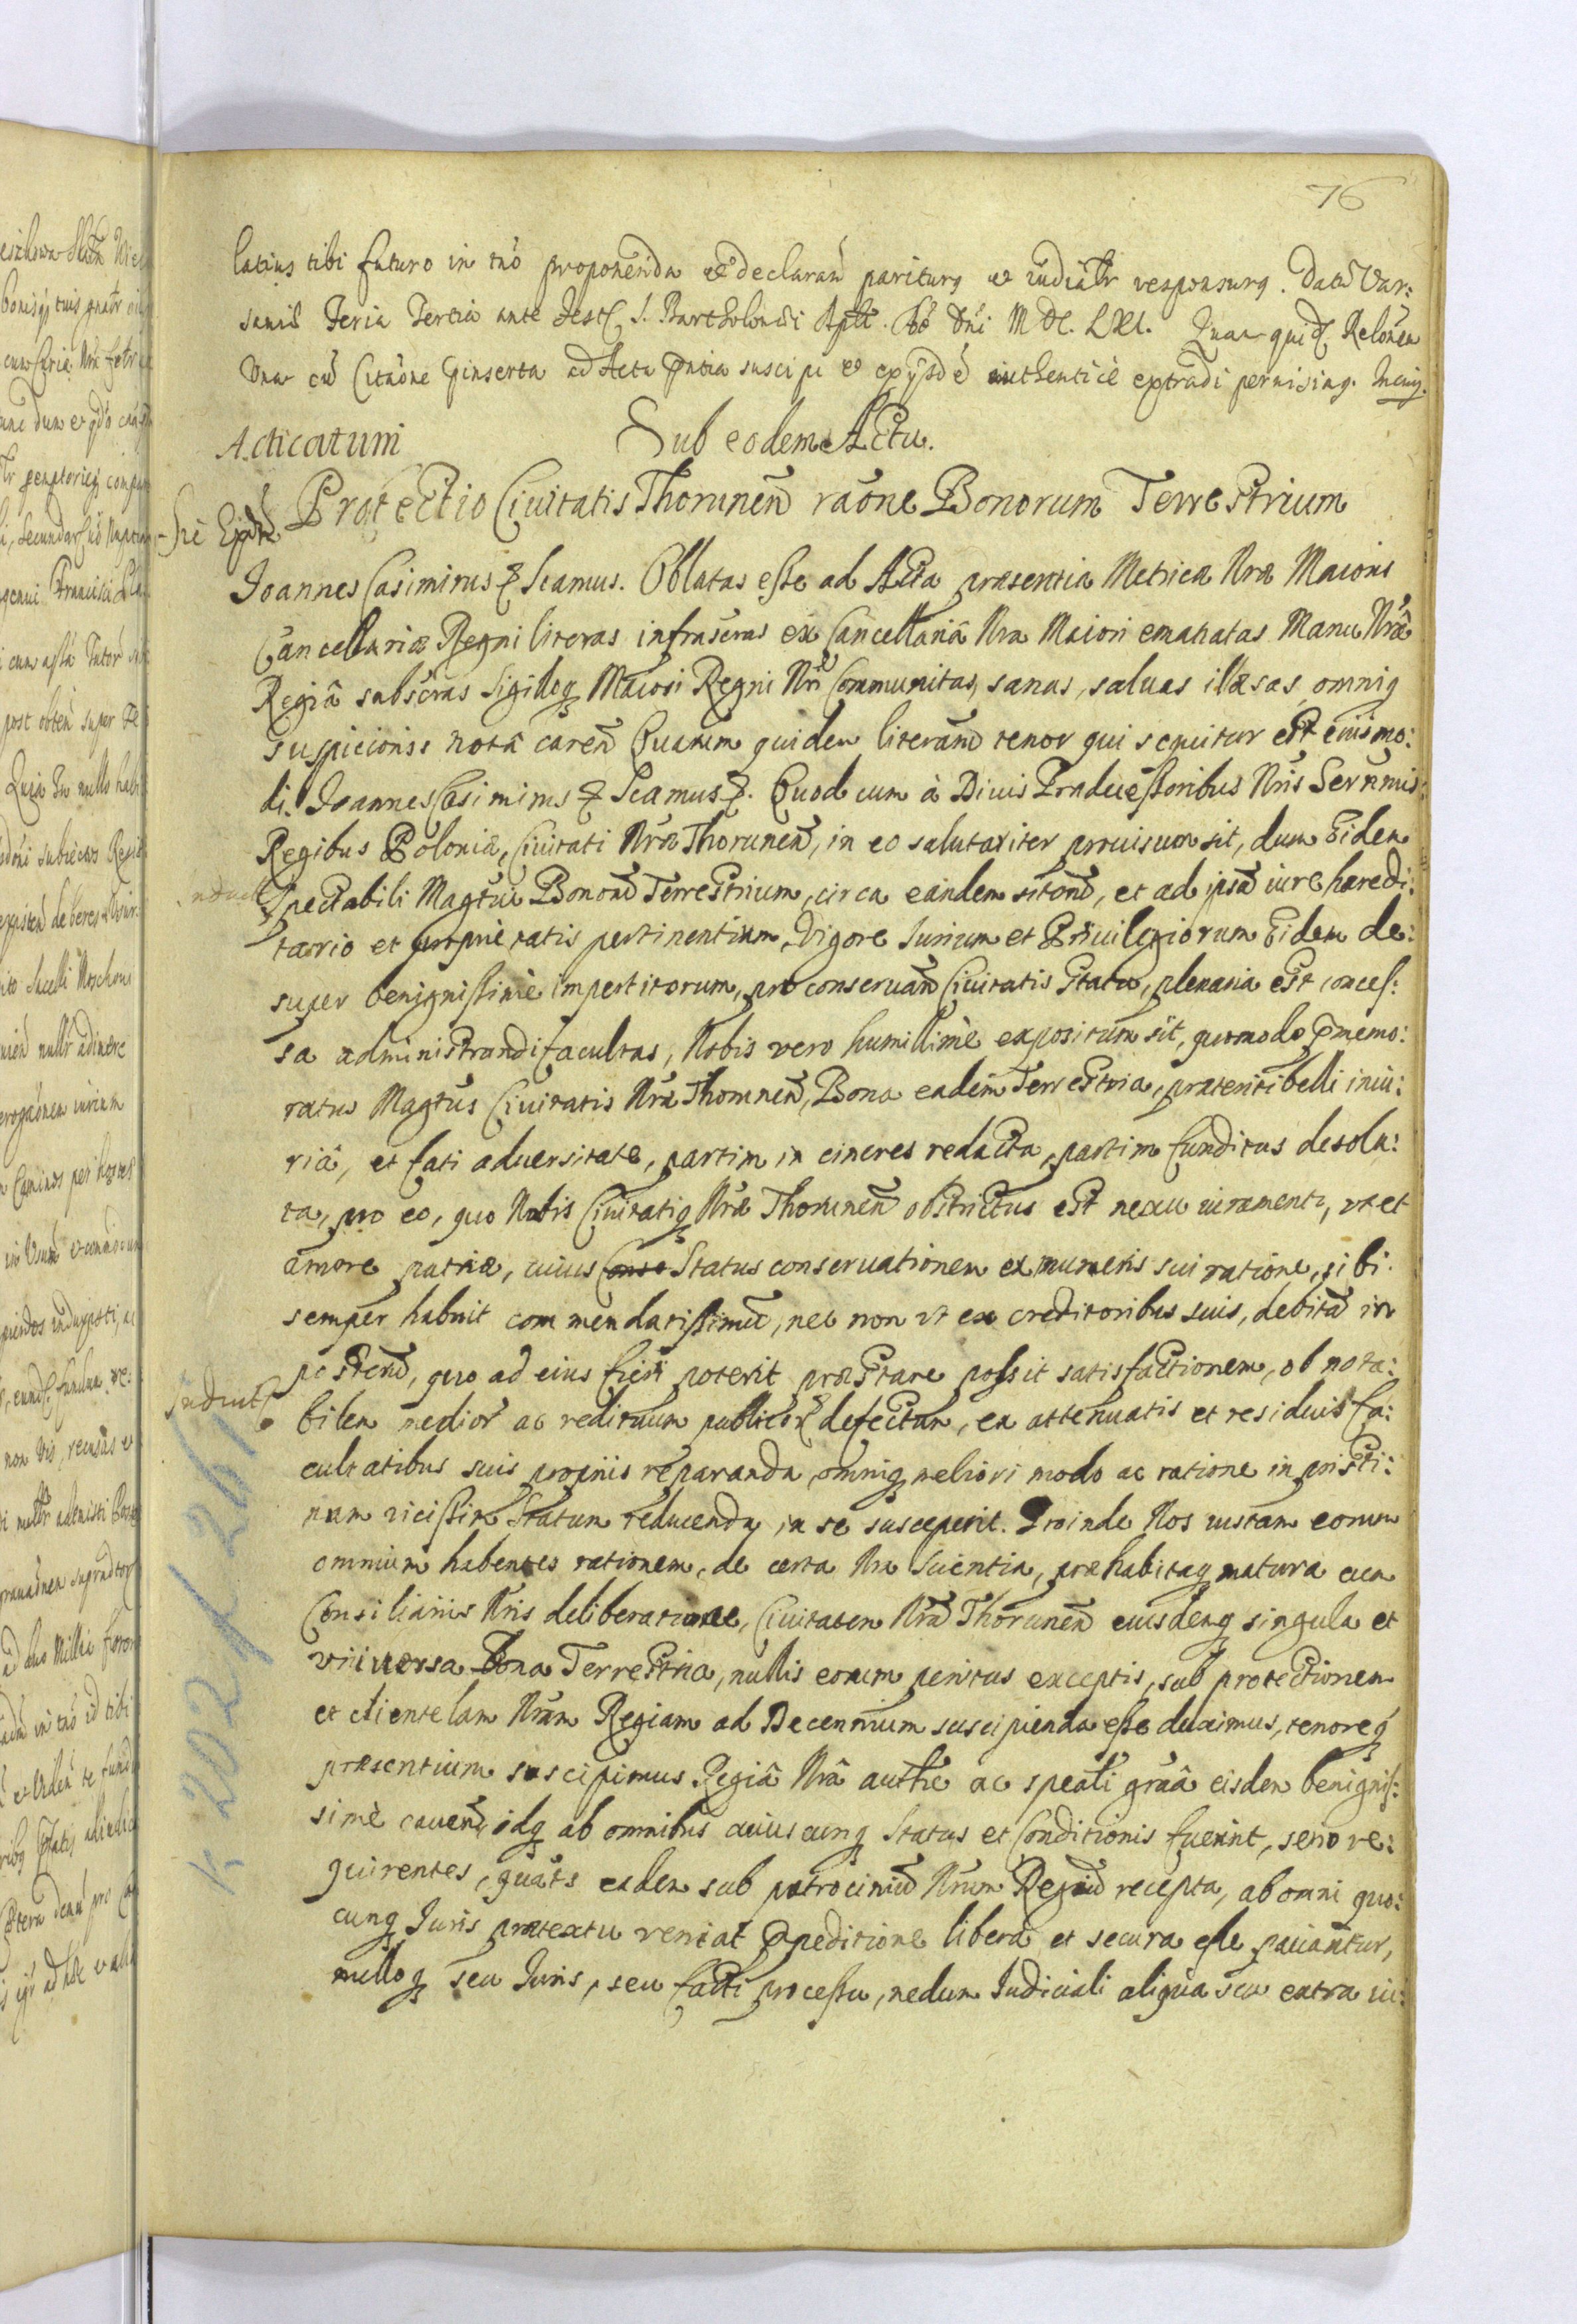 76
latius tibi futuro in tñō proponenda et declarań pariturq et iudialr responsurq. Datū Var:
saviæ Feria Tertia ante Fest S. Bartholomæi Apłi. Aō Dni M DC. LXI. Quam quid Relõnem
Vna cū Citaõne inserta ad Acta pñtia suscipi et authenticè extradi permisimq.
Acticatum Sub eodem Actu.
Protectio Ciuitatis Thorunen raõne Bonorum Terrestrium
Joannes Casimirus Scamus. Oblatas esse ad Acta præsentia Metricæ Nræ Maioris
Cancellariæ Regni literas infrascras ex Cancellariâ Nra Maiori emanatas Manu Nrâ
Regiâ subscras Sigilloq Maiori Regni Nri Communitas, sanas, saluas illæsas omniq
suspicionis notâ caren Quarum quidem literarum tenor qui sequitur est eiusmo:
di. Joannes Casimirus Scamus. Quod cum à Diuis Prædecessoribus Nris Serenmis
Regibus Poloniæ, Ciuitati Nræ Thorunen, in eo salutariter prouisum sit, dum Eidem
Spectabili Magtui Bonorū Terrestrium, circa eandem sitorū, et ad ipsā iure hæredi:
tario et proprietatis pertinentium, Vigore Jurium et Priuilegiorum Eidem de:
super benignissime impertitorum, pro conseruan Ciuitatis statu, plenaria est conces:
sa administrandi facultas, Nobis vero humillimè expositum sit, quomodo p̄memo:
ratus Magtus Ciuitatis Nræ Thorunen, Bona eadem Terrestria, præteriti belli iniu:
riâ, et fati aduersitate, partim in cineres redacta, partim funditus desola:
ta, pro eo, quo Nobis Ciuitatiq Nræ Thorunen obstrictus est nexu iuramenti, vt et
amore patriæ, cuius Conse Status conseruationem ex muneris sui ratione, sibi
semper habuit commendatissimū, nec non vt ex creditoribus suis, debitā in
posterū, quo ad eius fieri poterit præstare possit satisfactionem, ob nota:
bilem medior ac redituum publicor defectum, ex attenuatis et residuis fa:
cultatibus suis proprijs reparanda, omniq meliori modo ac ratione in pristi:
num vicissim Statum reducenda in se susceperit. Proinde Nos iustam eorum
omnium habentes rationem, de certa Nra Scientia, præhabitaq matura cum
Consiliarijs Nris deliberatione, Ciuitatem Nrā Thorunen eiusdemq singula et
vniuersa Bona Terrestria, nullis eorum penitus exceptis, sub protectionem
et clientelam Nram Regiam ad Decennium suscipienda esse duximus, tenoreq
præsentium suscipimus Regiâ Nrâ authte ac speāli grāâ eisdem benignis:
simè cauen, idq ab omnibus cuiuscunq Status et Conditionis fuerint, serio re:
quirentes, quats eadem sub patrociniū Nrum Regiū recepta, ab omni quo:
cunq Juris prætextu veniat expeditione libera et secura esse patiantur,
nulloq seu Juris, seu facti processu, nedum Judiciali aliqua seu extra iu: